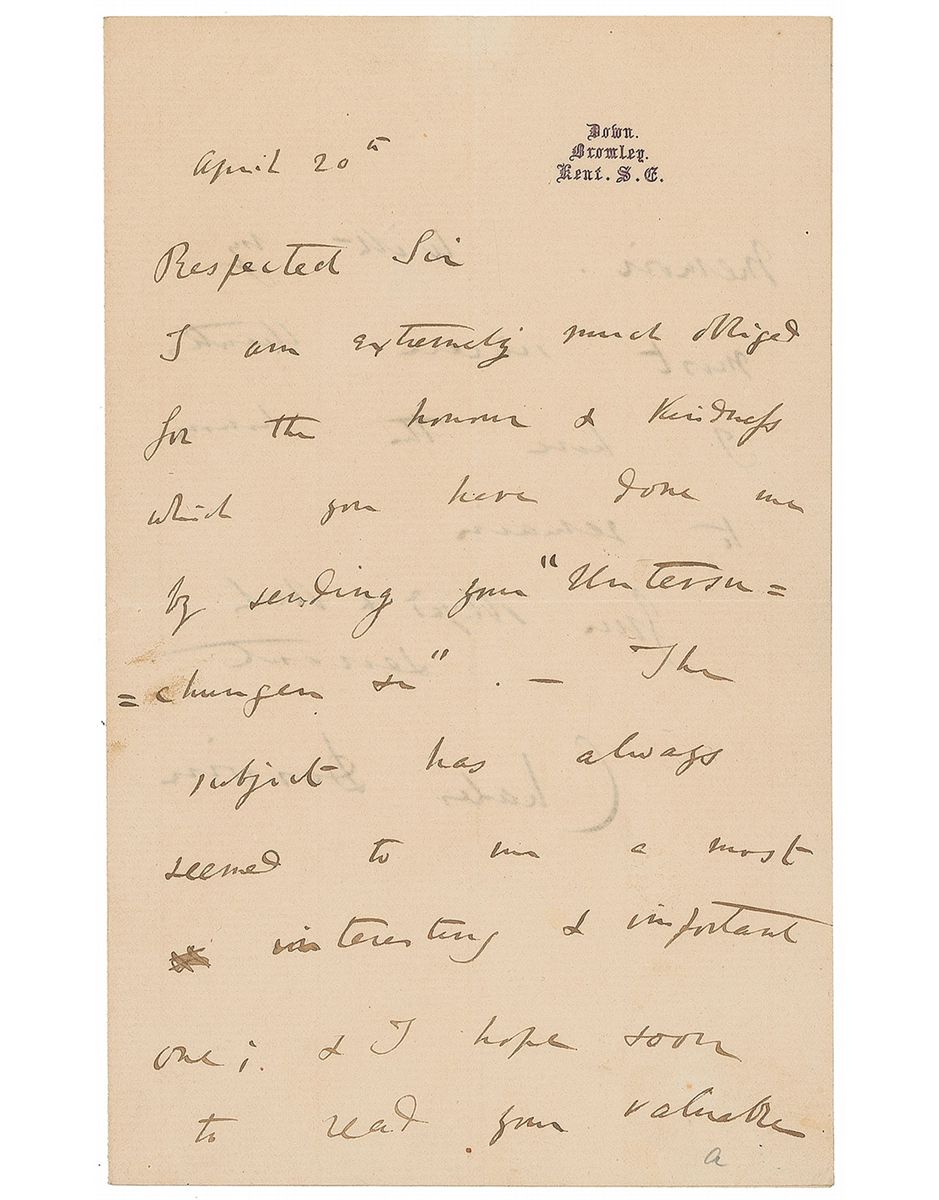 Down.
Bromley.
Kent. S.E.
April 20th
Respected Sir
I am extremely much obliged
for the honour & kindness
which you have done me
by sending your "Untersu=
=chungen &c". — The
subject has always
seemed to me a most
interesting & important
one; & I hope soon
to read your valuable
a